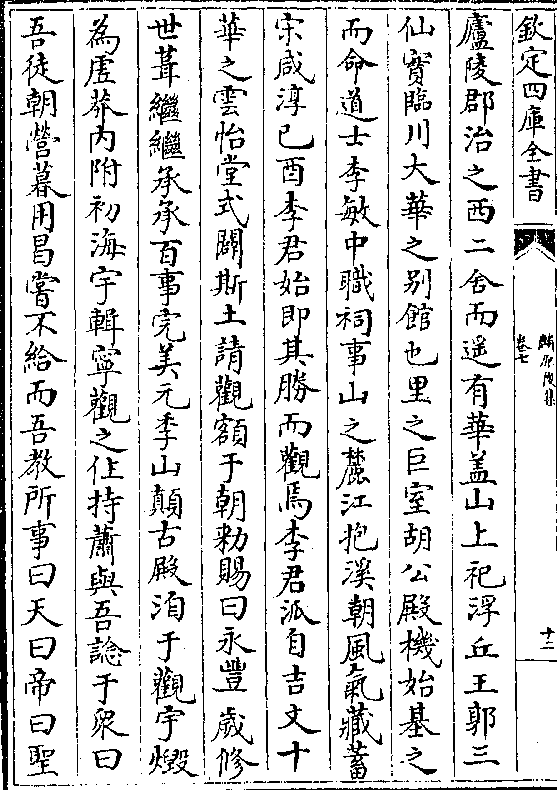 欽定四庫全書
卷七
十二
廬陵郡治之西二舍而遥有華盖山上祀浮丘王郭三
仙實臨川大華之别館也里之巨室胡公殿機始基之
而命道士李敏中職祠事山之麓江抱溪朝風氣藏蓄
宋咸淳已酉李君始即其勝而觀焉李君派自吉文十
華之雲怡堂式闢斯土請觀額于朝勑賜曰永豐歳修
世葺繼繼承承百事完美元季山顛古殿洎于觀宇燬
為虚莽内附初海宇輯寧觀之住持蕭與吾諗于衆曰
吾徒朝營暮用昌嘗不給而吾教所事曰天曰帝曰聖